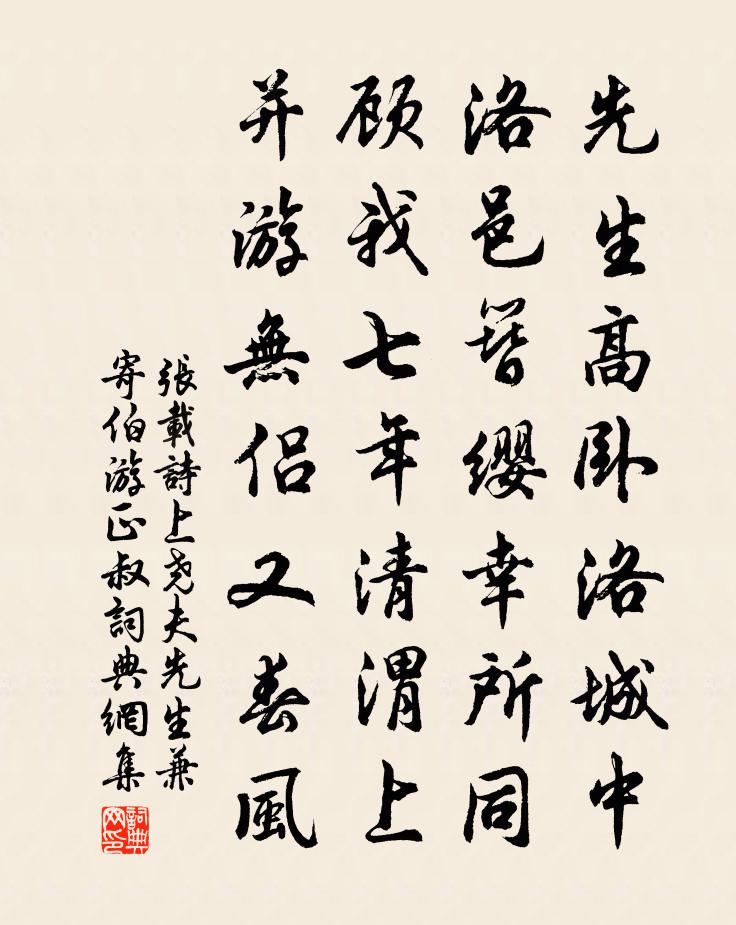 先生高卧洛城中
洛邑簪缨幸所同
顾我七年清渭上
并游無侣又春風
張載詩上尧夫先生兼
寄伯游正叔詞典網集
詞典網印